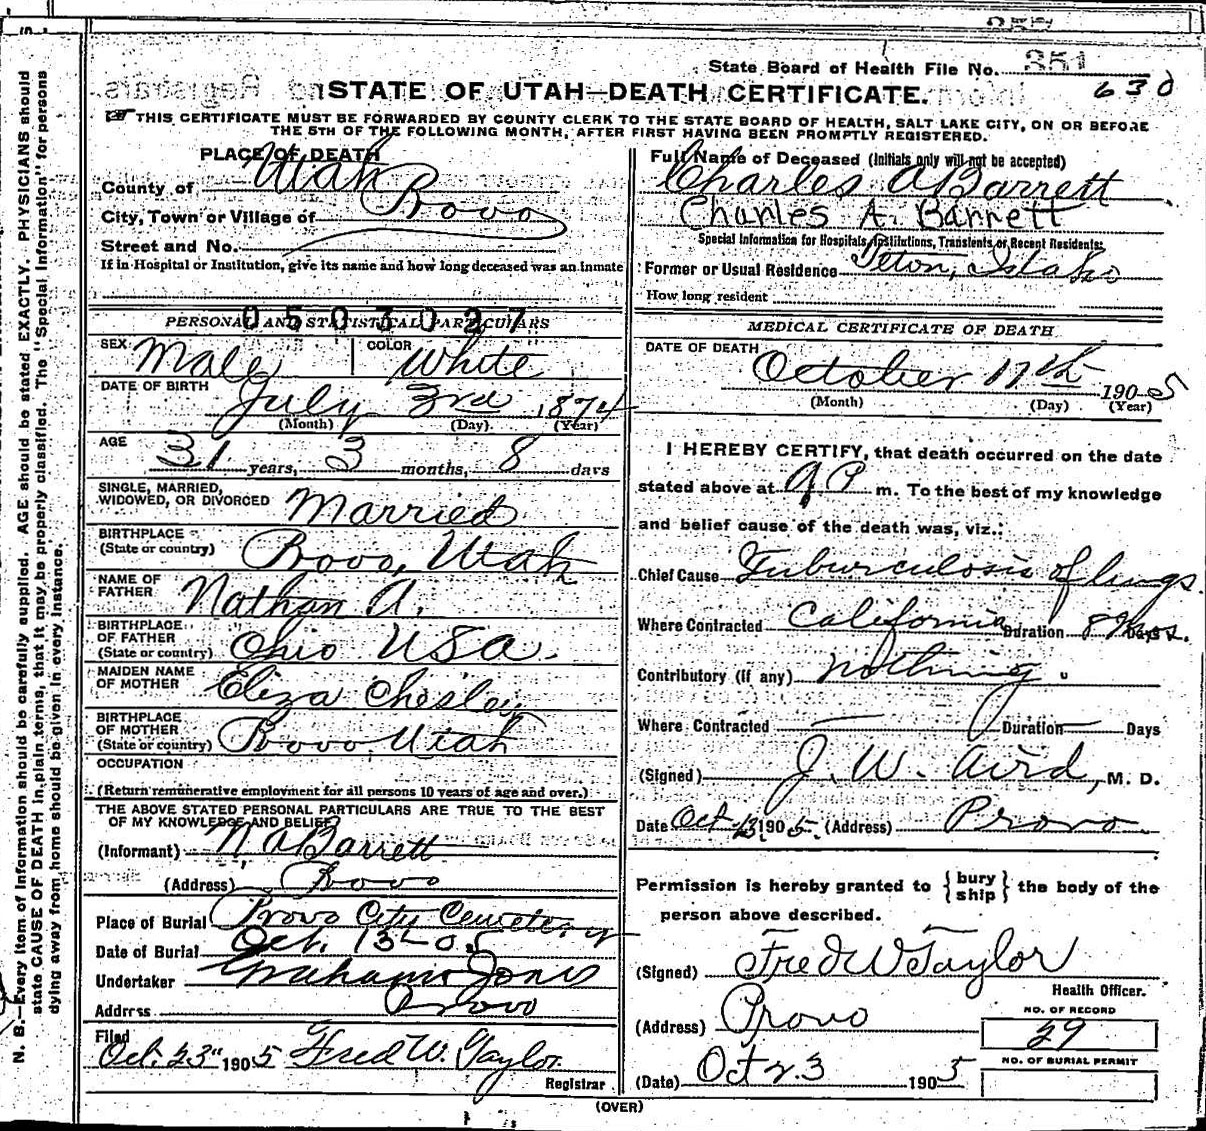 State Board of Health File No. 351
630
STATE OF UTAH—DEATH CERTIFICATE.
THIS CERTIFICATE MUST BE FORWARDED BY COUNTY CLERK TO THE STATE BOARD OF HEALTH, SALT LAKE CITY, ON OR BEFORE
THE 5TH OF THE FOLLOWING MONTH, AFTER FIRST HAVING BEEN PROMPTLY REGISTERED.
N. B.—Every item of information should be carefully supplied. AGE should be stated EXACTLY. PHYSICIANS should
state CAUSE OF DEATH in plain terms, that it may be properly classified. The "Special Information" for persons
dying away from home should be given in every instance.
PLACE OF DEATH
County of Utah
City, Town or Village of Provo
Street and No.
If in Hospital or Institution, give its name and how long deceased was an inmate
0503027
PERSONAL AND STATISTICAL PARTICULARS
SEX Male COLOR White
DATE OF BIRTH July 3rd 1874
(Month) (Day) (Year)
AGE 31 years, 3 months, 8 days
SINGLE, MARRIED,
WIDOWED, OR DIVORCED Married
BIRTHPLACE
(State or country) Provo, Utah
NAME OF
FATHER Nathan A.
BIRTHPLACE
OF FATHER
(State or country) Ohio USA.
MAIDEN NAME
OF MOTHER Eliza Chesley
BIRTHPLACE
OF MOTHER
(State or country) Provo Utah
OCCUPATION
(Return remunerative employment for all persons 10 years of age and over.)
THE ABOVE STATED PERSONAL PARTICULARS ARE TRUE TO THE BEST
OF MY KNOWLEDGE AND BELIEF
(Informant) N A Barrett
(Address) Provo
Place of Burial Provo City Cemetery
Date of Burial Oct. 13-05
Undertaker Graham Jones
Address Provo
Filed
Oct. 23" 1905 Fred W. Taylor
Registrar
Full Name of Deceased (Initials only will not be accepted)
Charles A Barrett
Charles A. Barrett
Special Information for Hospitals, Institutions, Transients or Recent Residents:
Former or Usual Residence Teton, Idaho
How long resident
MEDICAL CERTIFICATE OF DEATH
DATE OF DEATH
October 11th 1905
(Month) (Day) (Year)
I HEREBY CERTIFY, that death occurred on the date
stated above at 9 P m. To the best of my knowledge
and belief cause of the death was, viz.:
Chief Cause Tuburculosis of lungs
Where Contracted California Duration 8 Mos. Days
Contributory (if any) nothing
Where Contracted — Duration — Days
(Signed) J. W. Aird, M. D.
Date Oct 13 1905. (Address) Provo.
Permission is hereby granted to { bury ship } the body of the
person above described.
(Signed) Fred W Taylor
Health Officer.
(Address) Provo
(Date) Oct 23 1905
NO. OF RECORD
29
NO. OF BURIAL PERMIT
(OVER)